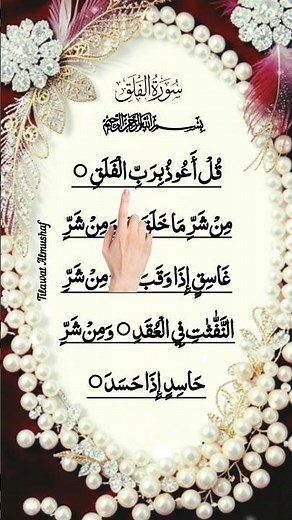 سُورَةُ الْفَلَقِ
بِسْمِ اللَّهِ الرَّحْمَٰنِ الرَّحِيمِ
قُلْ اَعُوْذُ بِرَبِّ الْفَلَقِ ○
مِنْ شَرِّ مَا خَلَقَ مِنْ شَرِّ
غَاسِقٍ اِذَا وَقَبَ وَمِنْ شَرِّ
النَّفّٰثٰتِ فِي الْعُقَدِ ○ وَمِنْ شَرِّ
حَاسِدٍ اِذَا حَسَدَ ○
Tilawat Almushaf